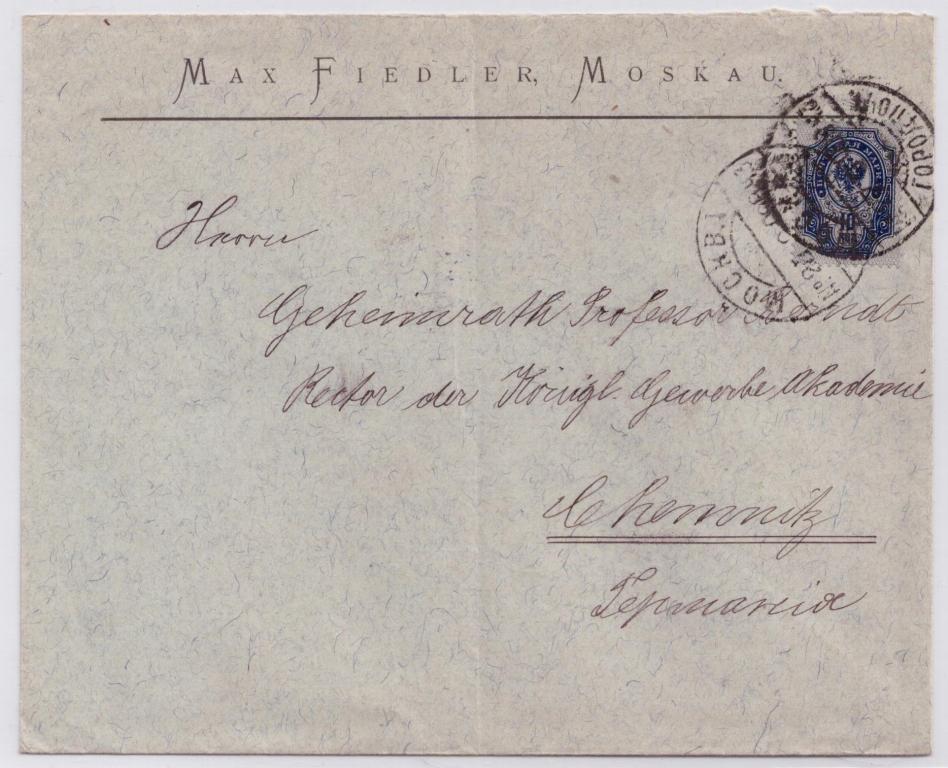 MAX FIEDLER, MOSKAU.
ПОЧТОВАЯ МАРКА
10
МОСКВА
Herrn
Geheimrath Professor
Rector der Königl. Gewerbe Akademie
Chemnitz
Германія